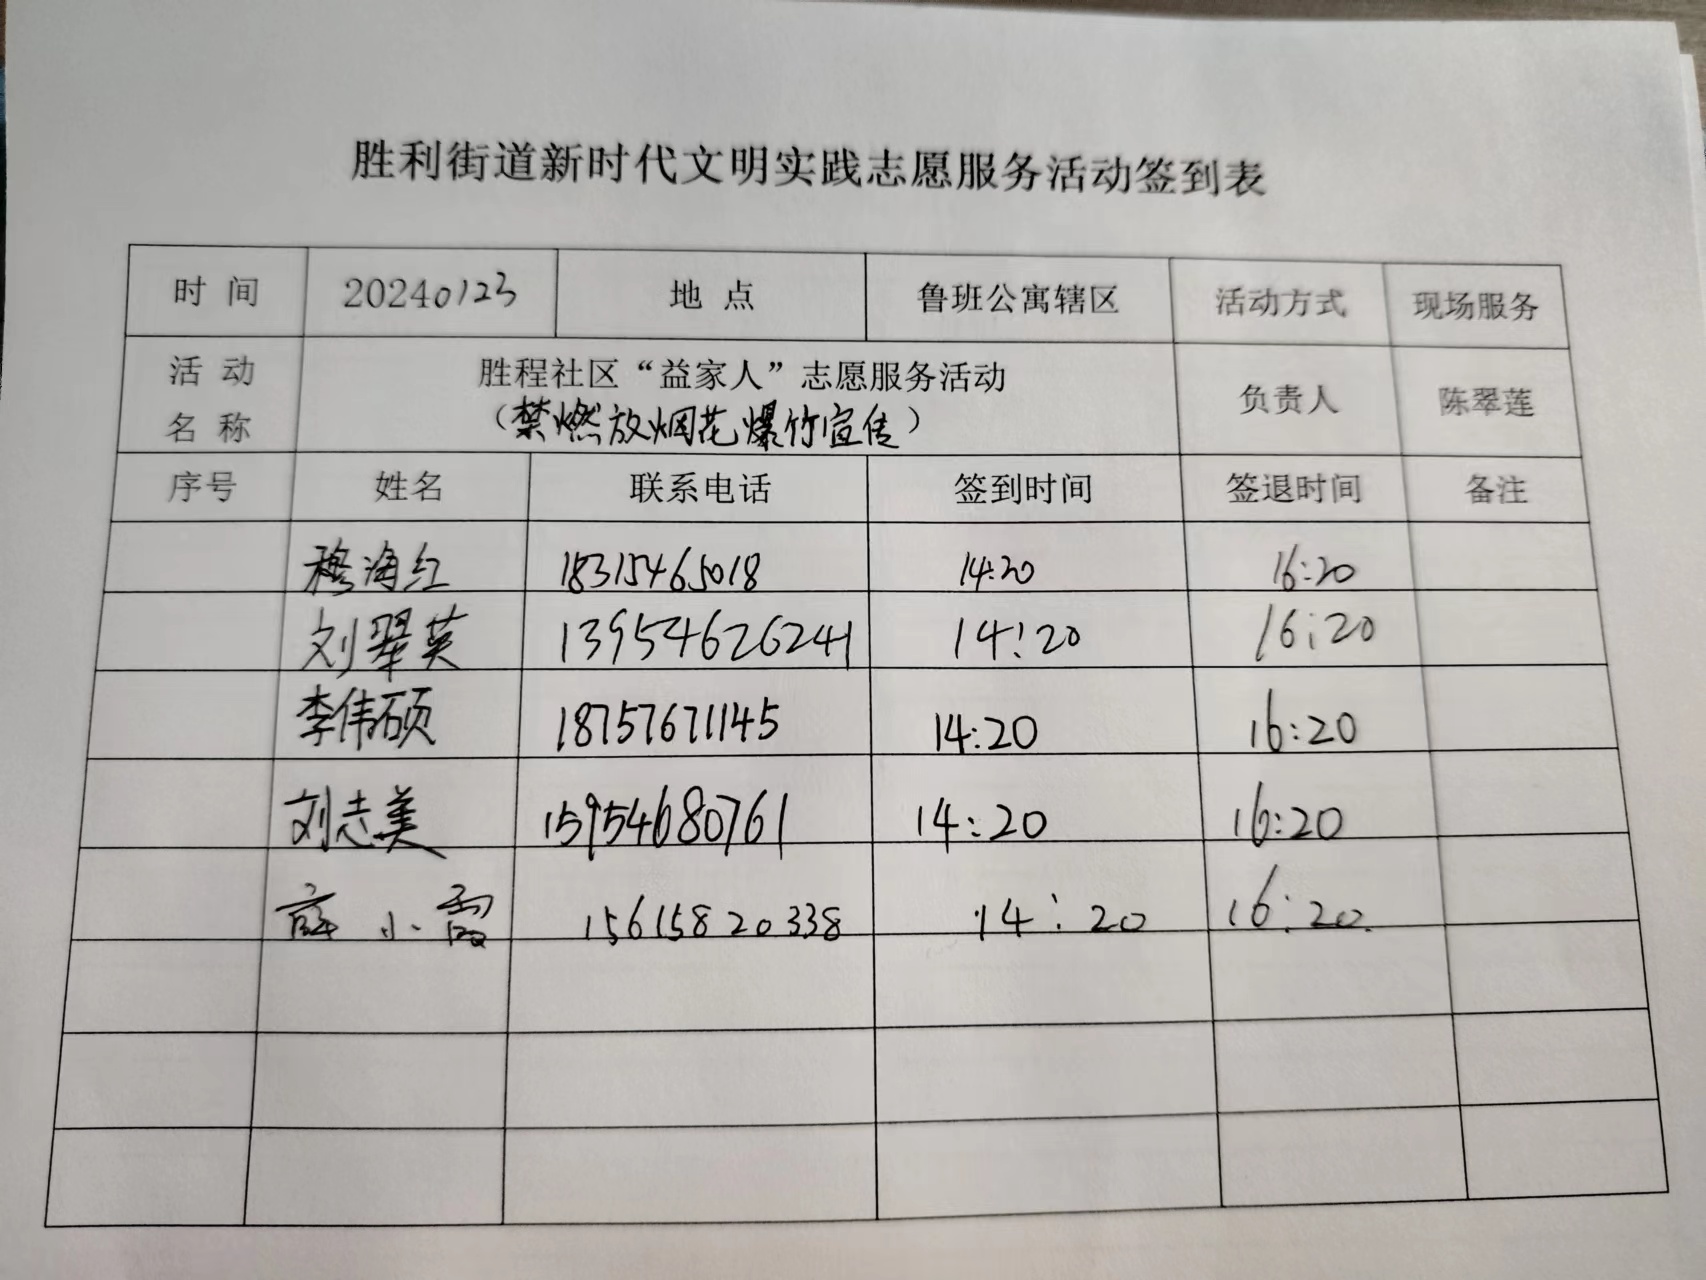 胜利街道新时代文明实践志愿服务活动签到表
时 间 20240123 地 点 鲁班公寓辖区 活动方式 现场服务
活 动 名 称 胜程社区“益家人”志愿服务活动 (禁燃放烟花爆竹宣传) 负责人 陈翠莲
序号 姓名 联系电话 签到时间 签退时间 备注
穆海红 18315465018 14:20 16:20
刘翠英 13954626241 14:20 16:20
李伟硕 18757671145 14:20 16:20
刘志美 15954680761 14:20 16:20
薛小霞 15615820338 14:20 16:20